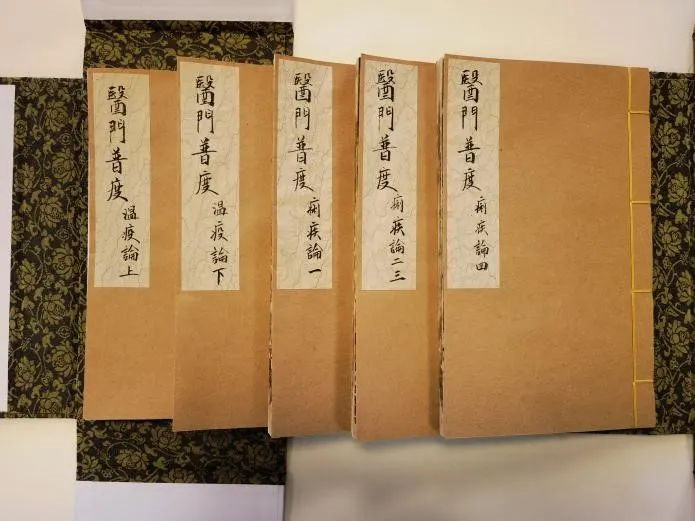 醫門普度 温疫論上
醫門普度 温疫論下
醫門普度 痢疾論一
醫門普度 痢疾論二三
醫門普度 痢疾論四